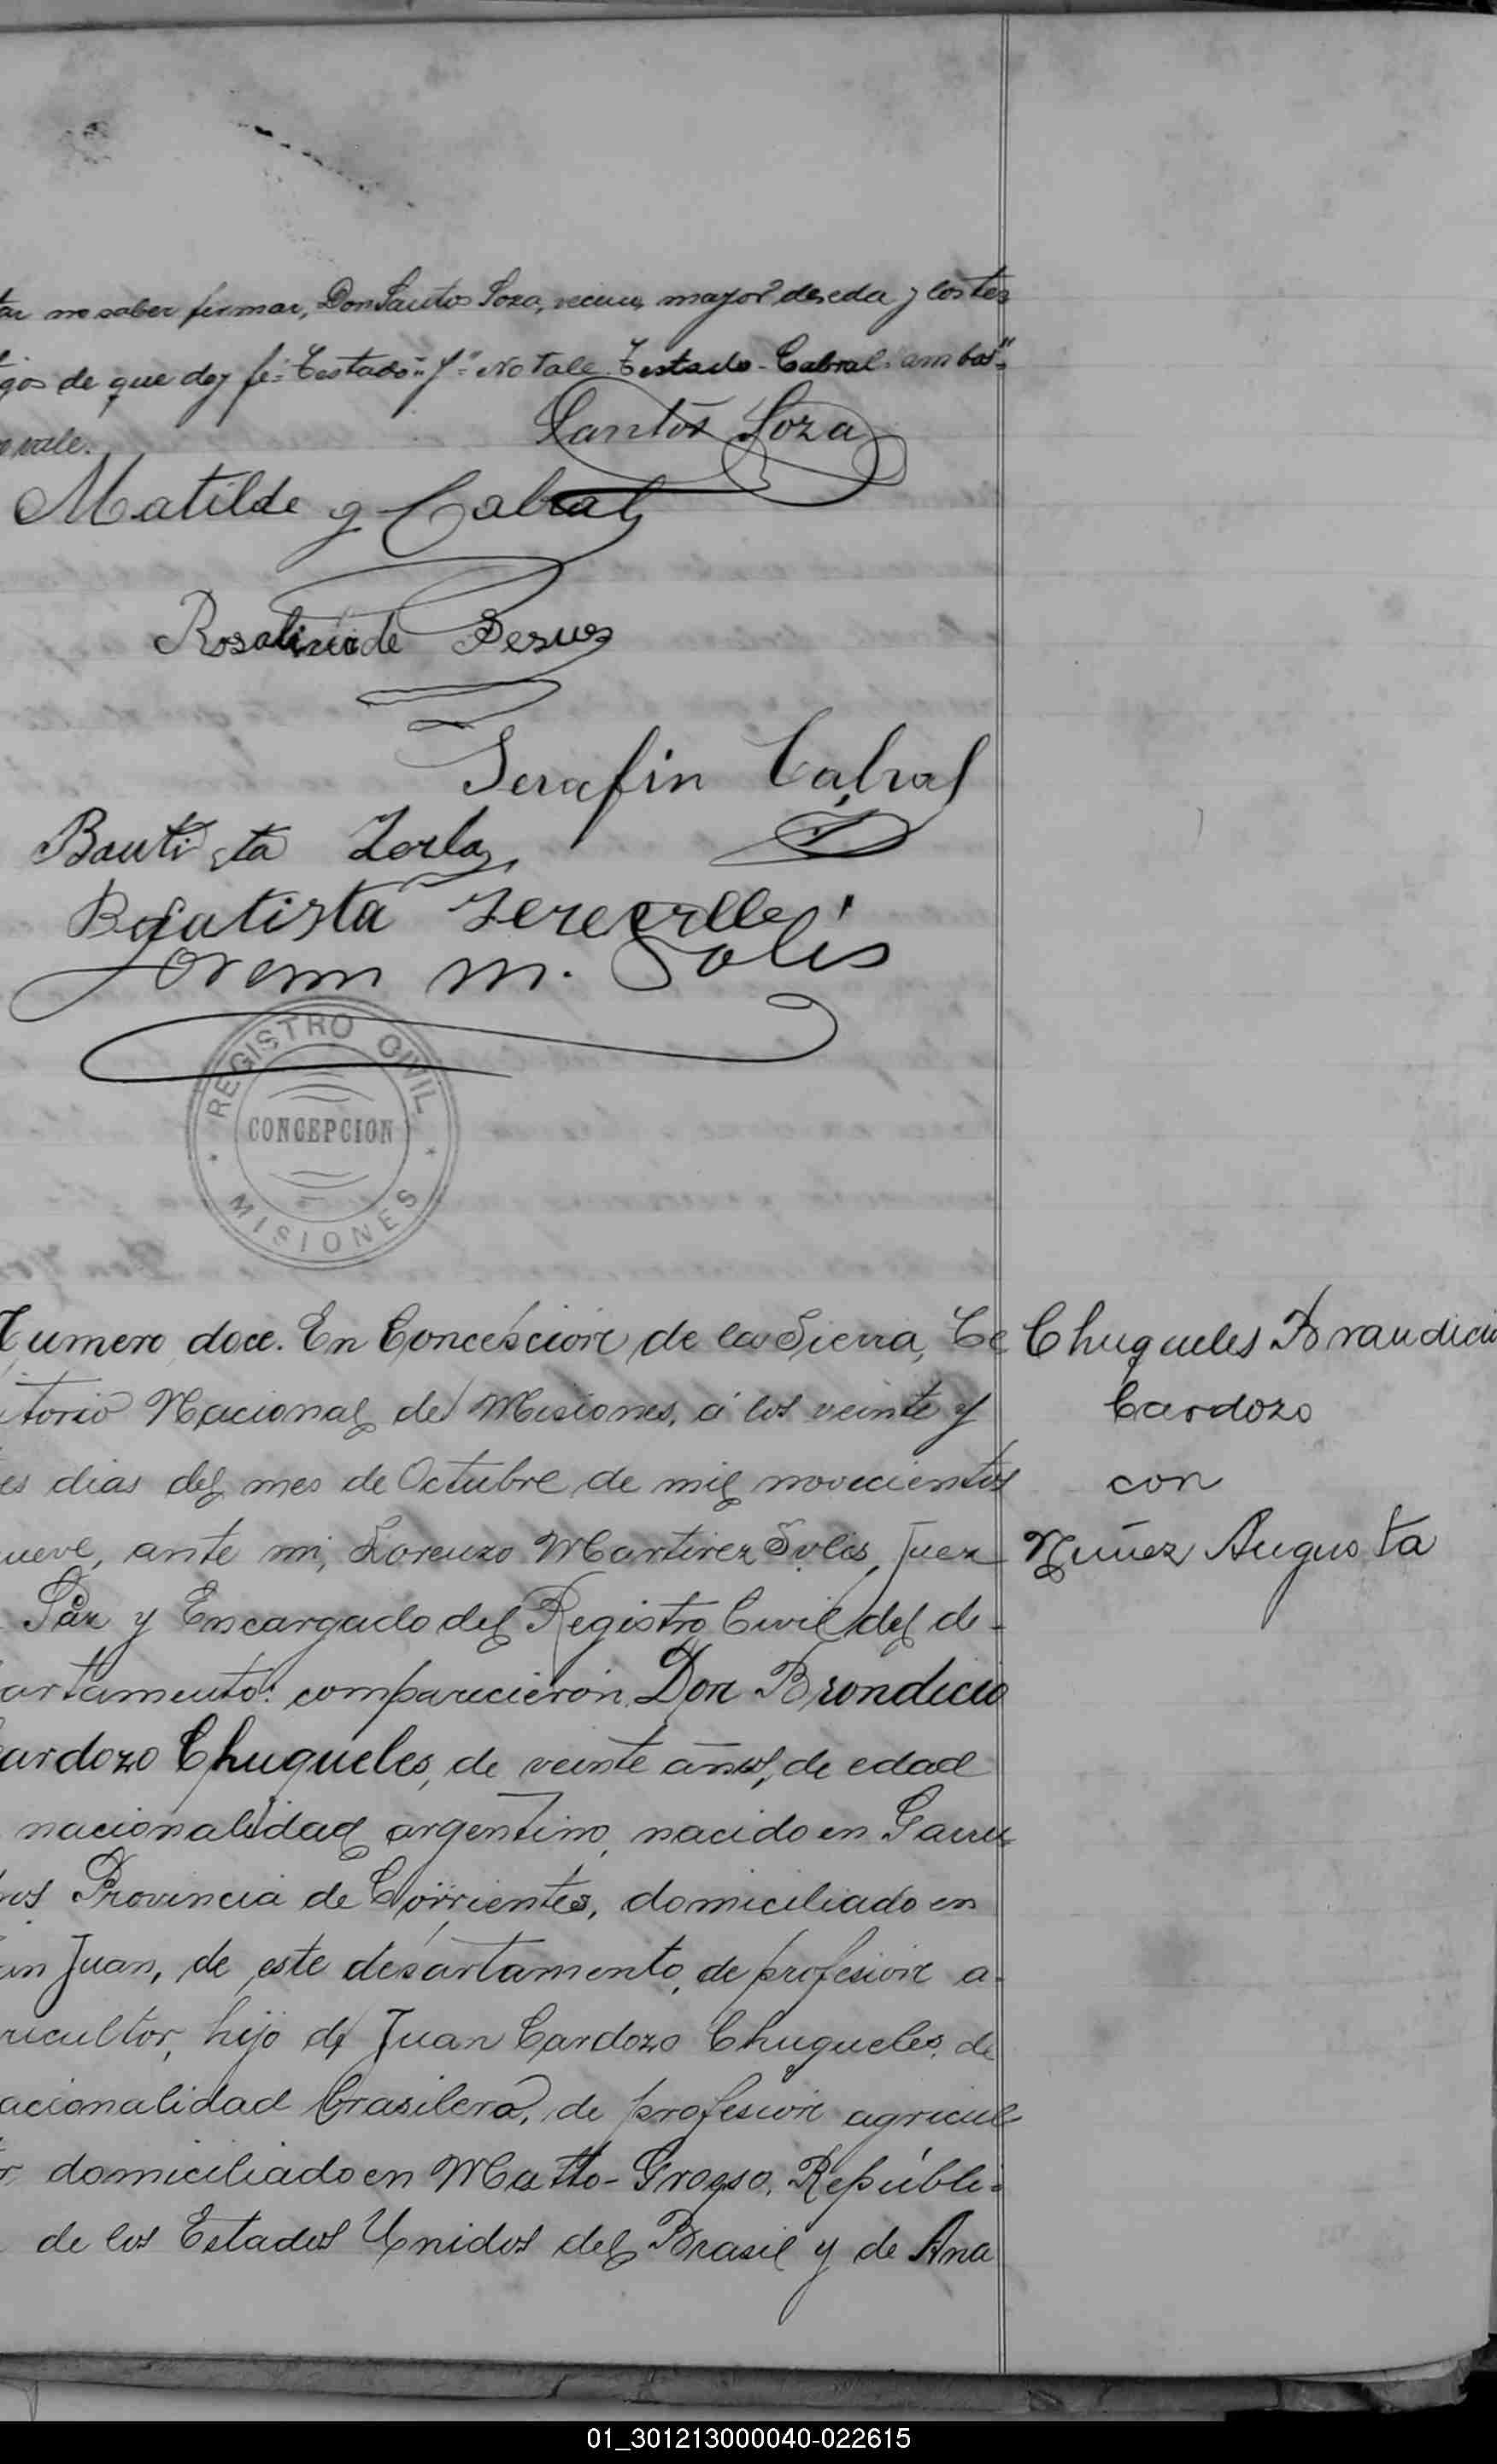 no saber firmar, Don Santos Soza, vecino, mayor de eda y los tes
gos de que doy fé= Testado
No vale. Testado - Cabral. ambos=
vale.
Santos Soza
Matilde g Cabral
Rosalino de Jesus
Serafin Cabral
Bautista
Solis
REGISTRO CIVIL
CONCEPCION
MISIONES
umero doce. En Concepcion de la Sierra, Te
itorio Nacional de Misiones, á los veinte y
es dias del mes de Octubre de mil novecientos
ueve, ante mi, Lorenzo Martirez Solis, Juez
Paz y Encargado del Registro Civil del de-
artamento: comparecieron Don Brondicio
ardozo Chuqueles, de veinte años, de edad
nacionalidad argentino, nacido en Garru-
os Provincia de Corrientes, domiciliado en
an Juan, de este departamento, de profesion a-
ricultor, hijo de Juan Cardozo Chuqueles, de
acionalidad brasilera, de profesion agricul-
r domiciliado en Matto-Grosso, Repúbli-
de los Estados Unidos del Brasil y de Ana
Chuqueles Brandicio
Cardozo
con
Nuñez Augusta
01_301213000040-022615